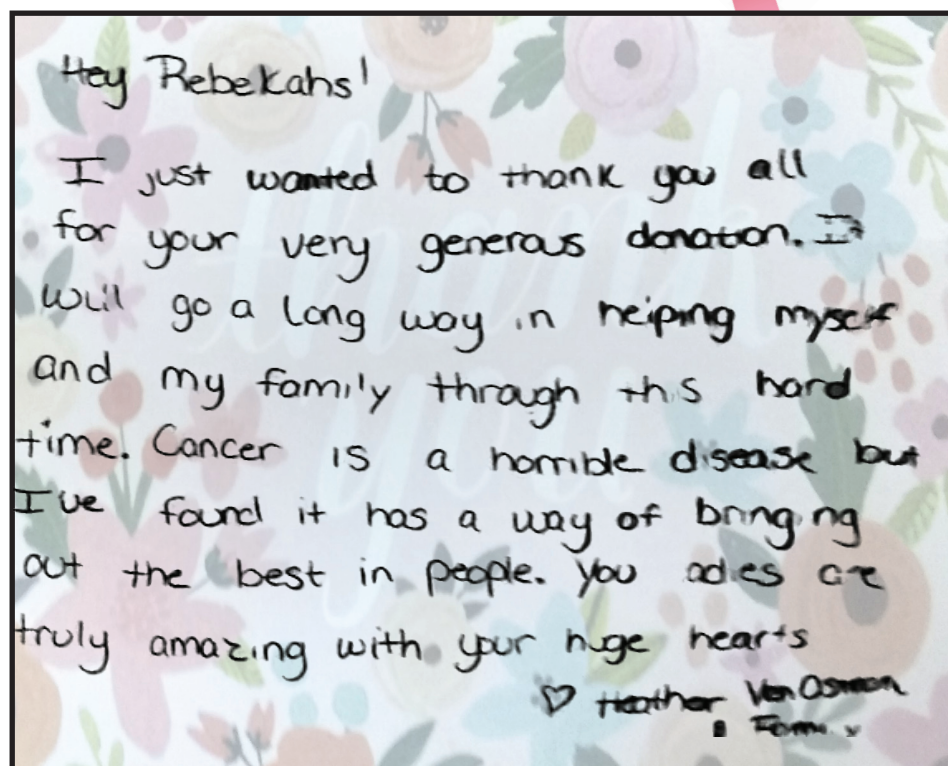 Hey Rebekahs!
I just wanted to thank you all
for your very generous donation. It
will go a long way in helping myself
and my family through this hard
time. Cancer is a horrible disease but
I've found it has a way of bringing
out the best in people. You ladies are
truly amazing with your huge hearts
♡ Heather
& Family
thank
you